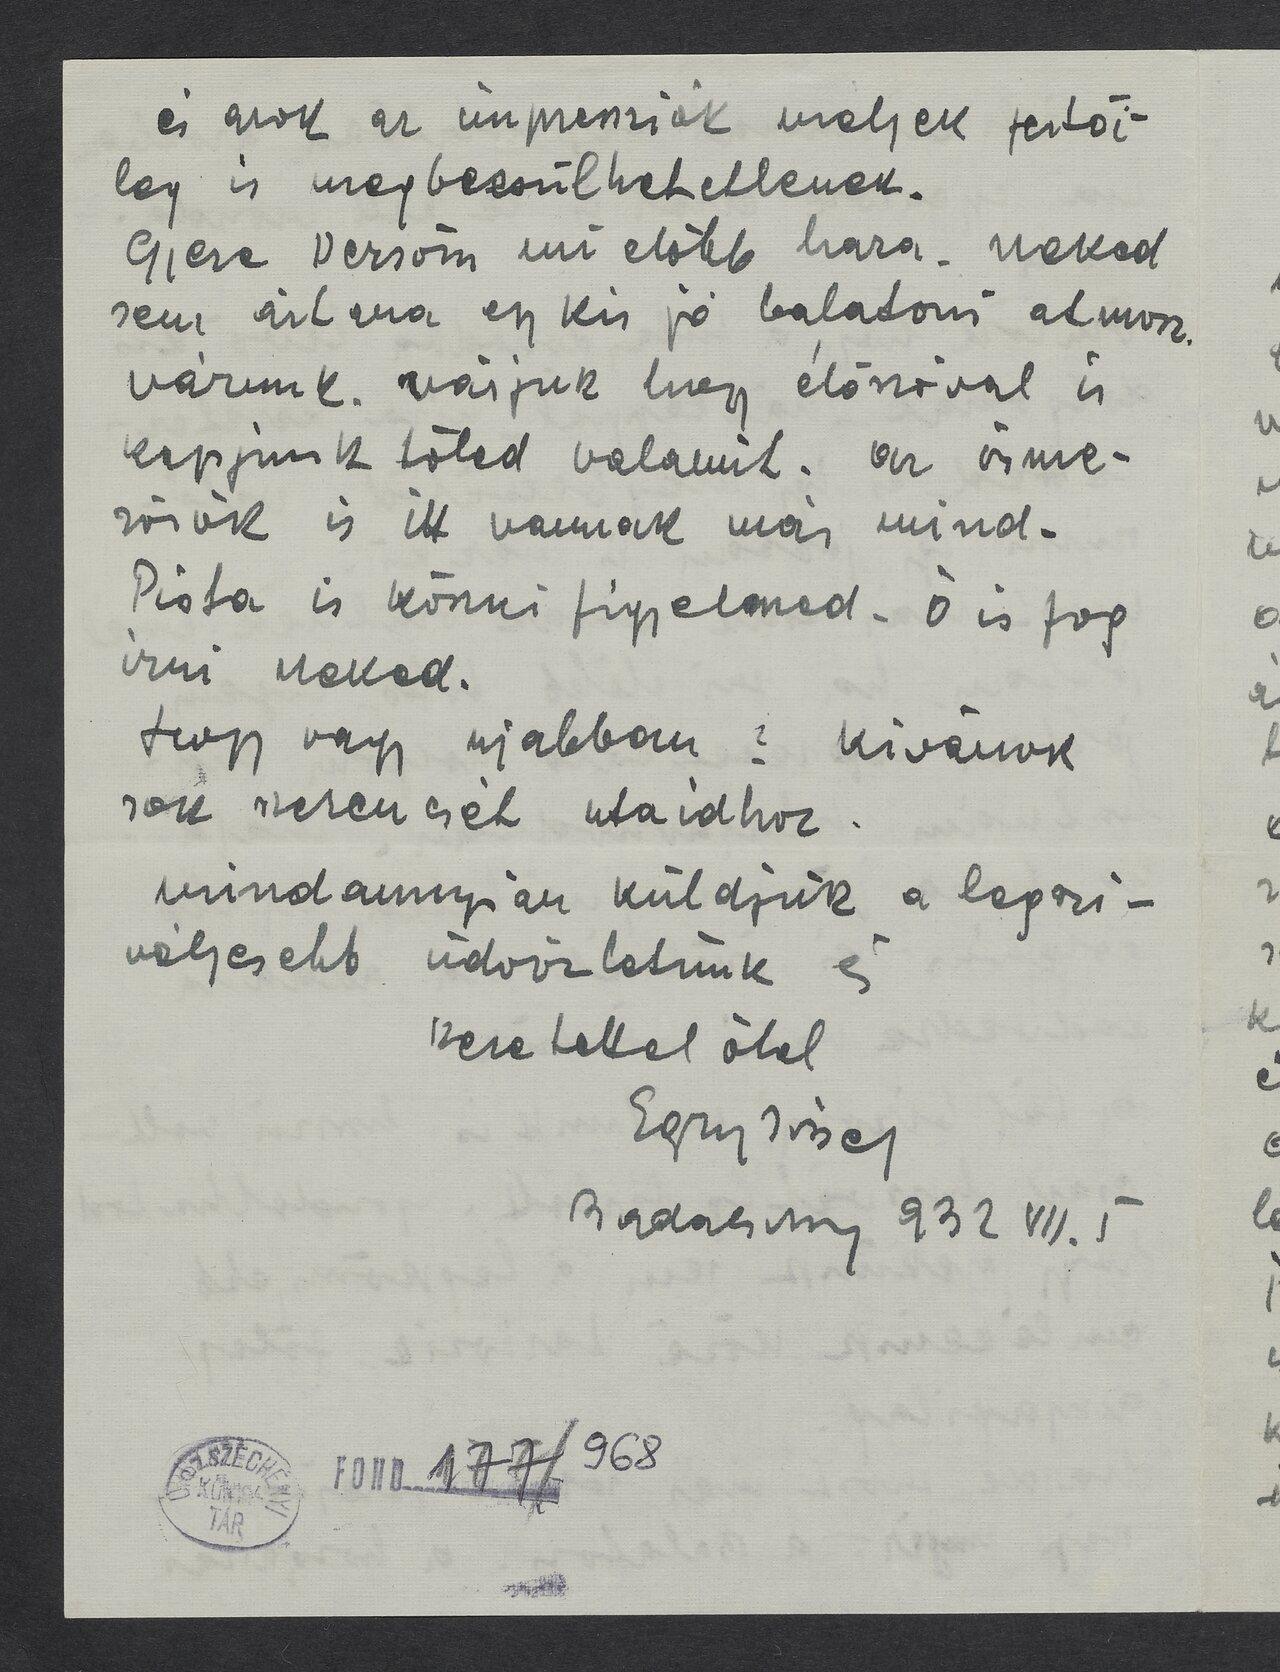 és azok az impressziók melyek festői-
leg is megbecsülhetetlenek.
Gyere Dezsőm mi előbb haza. neked
sem ártana egy kis jó balatoni atmosz.
várunk. várjuk hogy élőszóval is
kapjunk tőled valamit. az isme-
rősök is itt vannak már mind.
Pista is köszni figyelmed. Ő is fog
irni neked.
Hogy vagy ujabban? Kivánok
sok szerencsét utaidhoz.
mindannyian küldjük a legszi-
vélyesebb üdvözletünk és
szeretettel ölel
Egry József
Badacsony 932 VII. 1
ORSZ. SZÉCHÉNYI
KÖNYV
TÁR
FOND 177/968